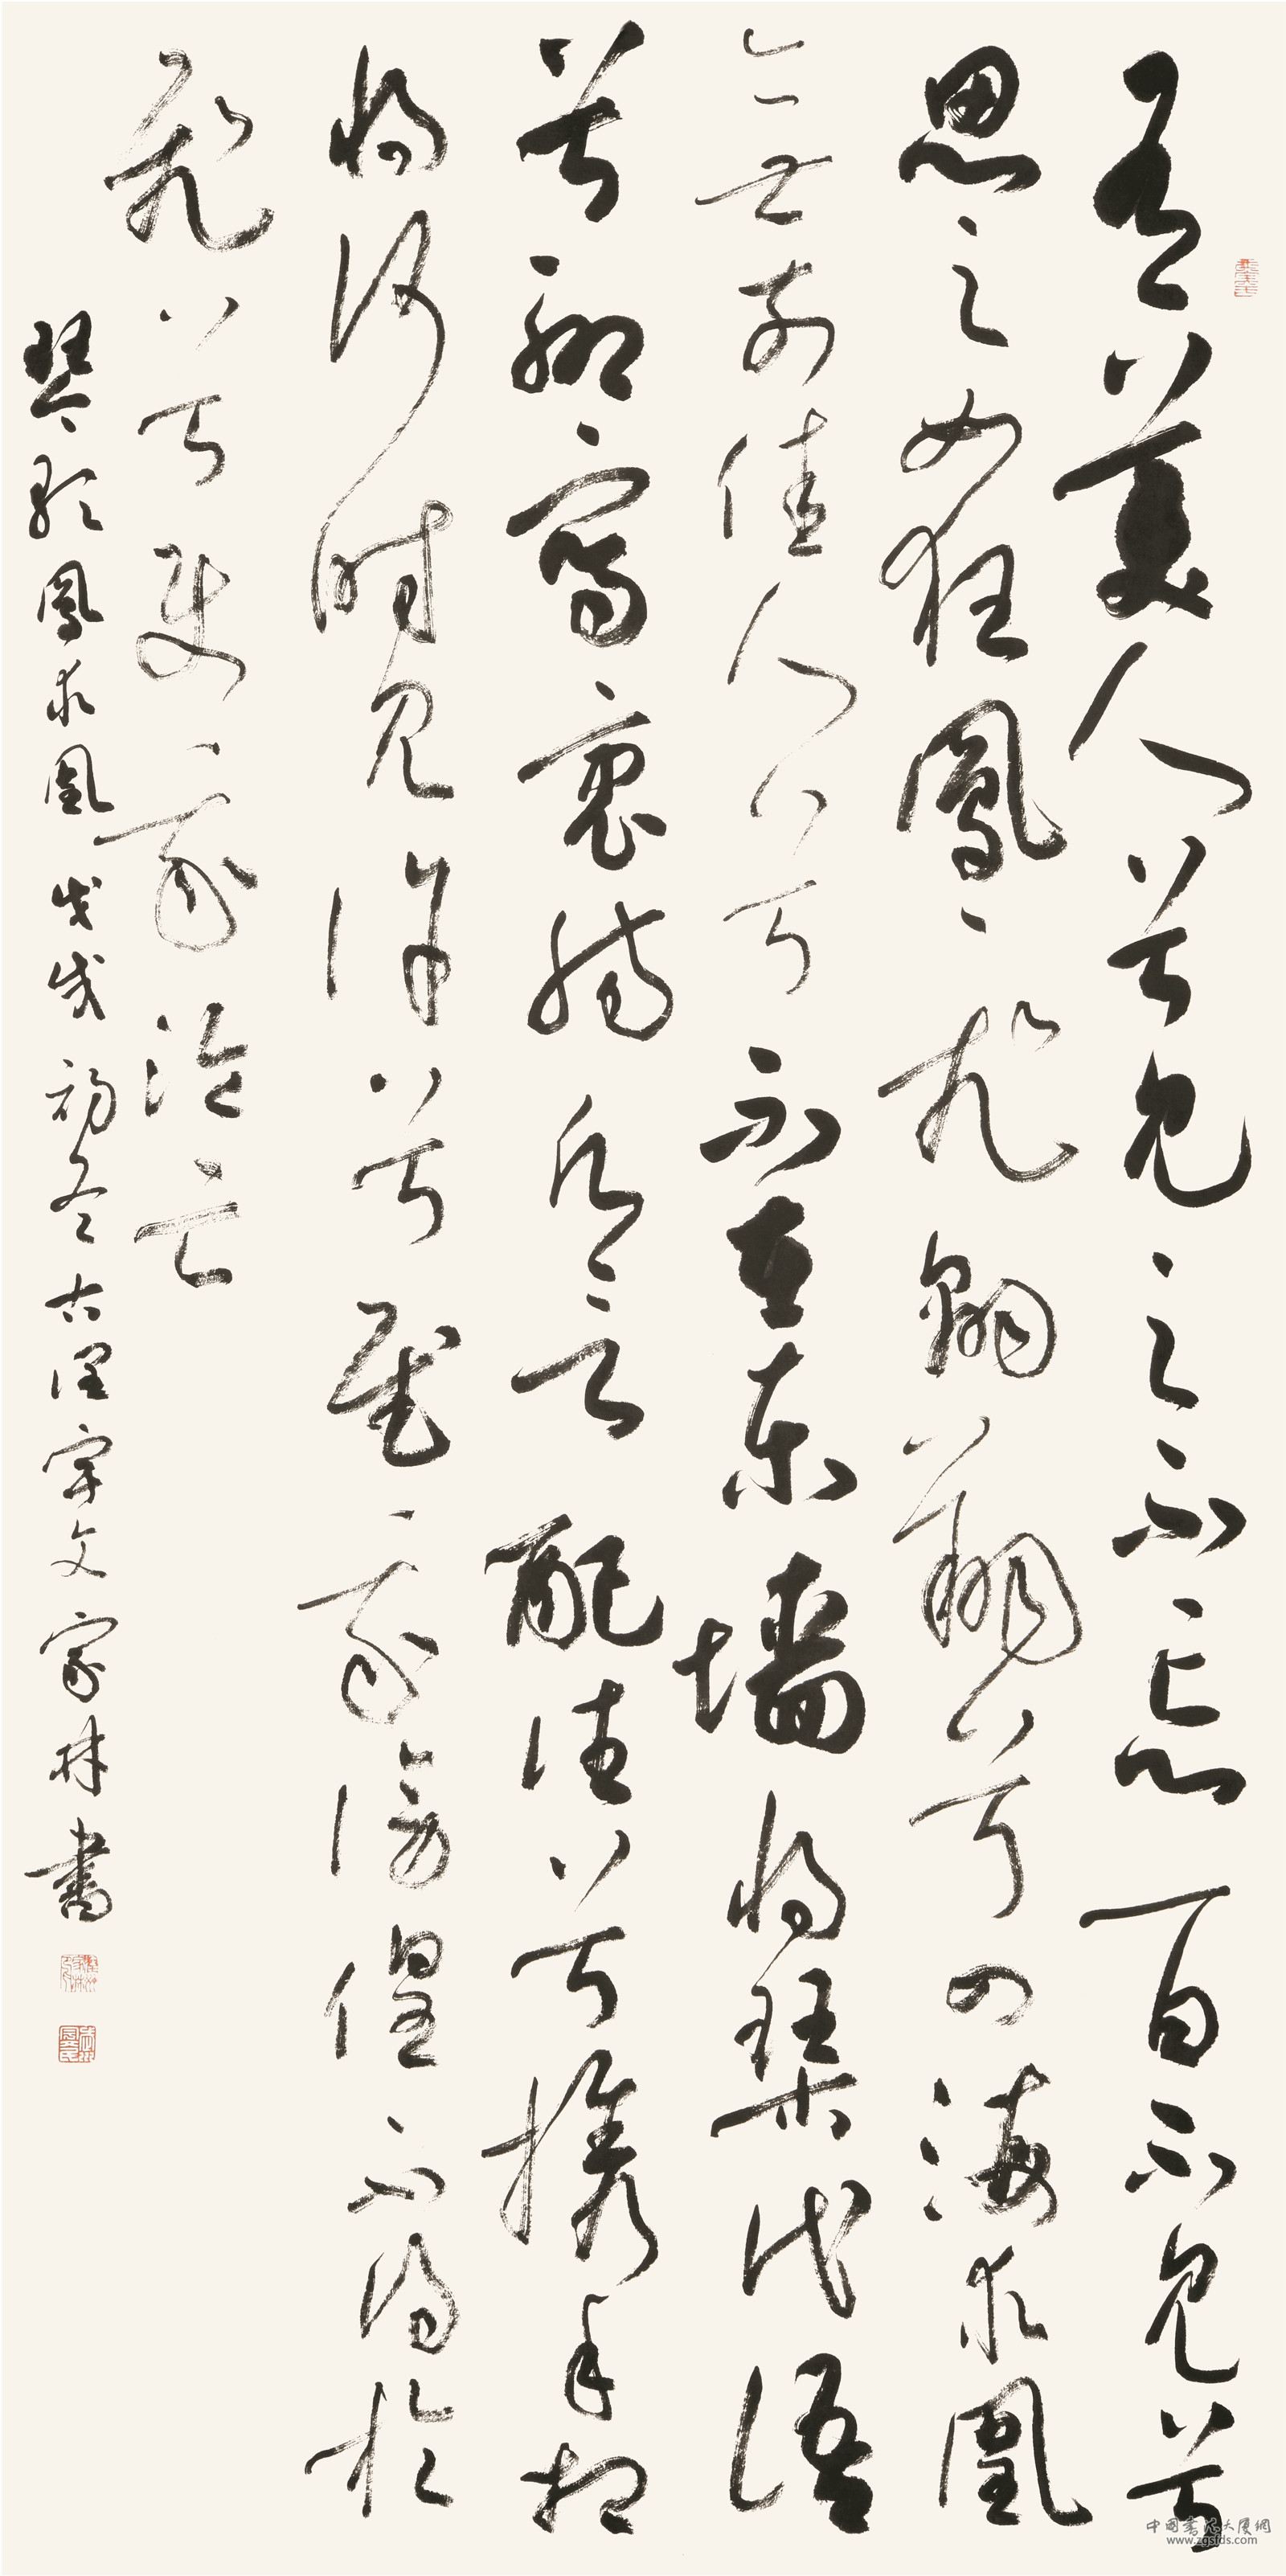 有美人兮見之不忘一日不見兮
思之如狂鳳飛翱翔兮四海求凰
無奈佳人兮不在東墻將琴代語
兮聊寫衷腸願言配德兮攜手相
將何時見許兮慰我傍徨不得於
飛兮使我淪亡
琴歌鳳求凰 戊戌初冬古潼宇文家林書
中國書法大廈網
www.zgsfds.com